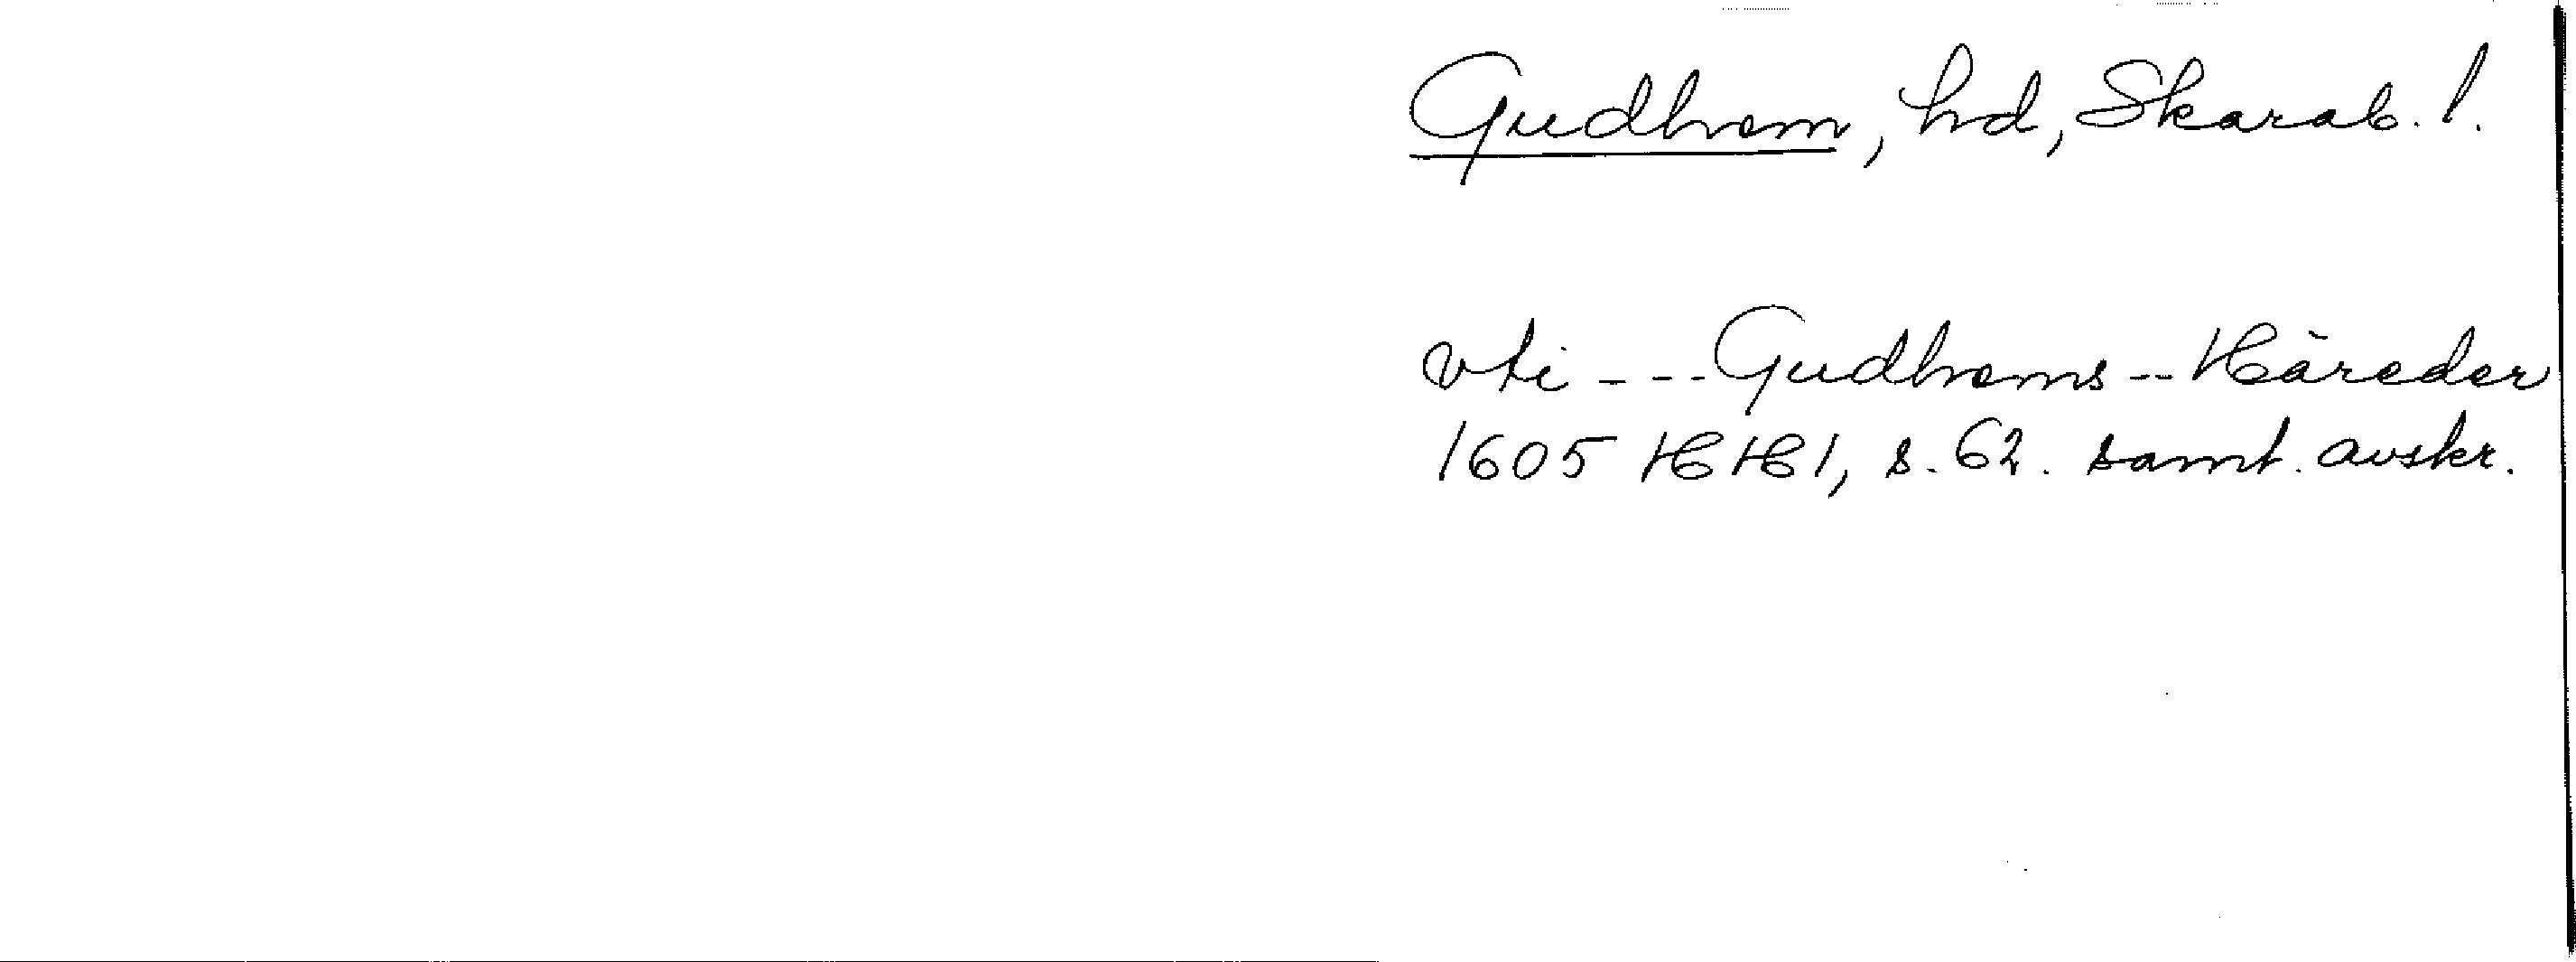 Gudhem, hd, Skarab. l.
vti --- Gudhems -- Häreder
1605 HH 1, s. 62. samt. avskr.